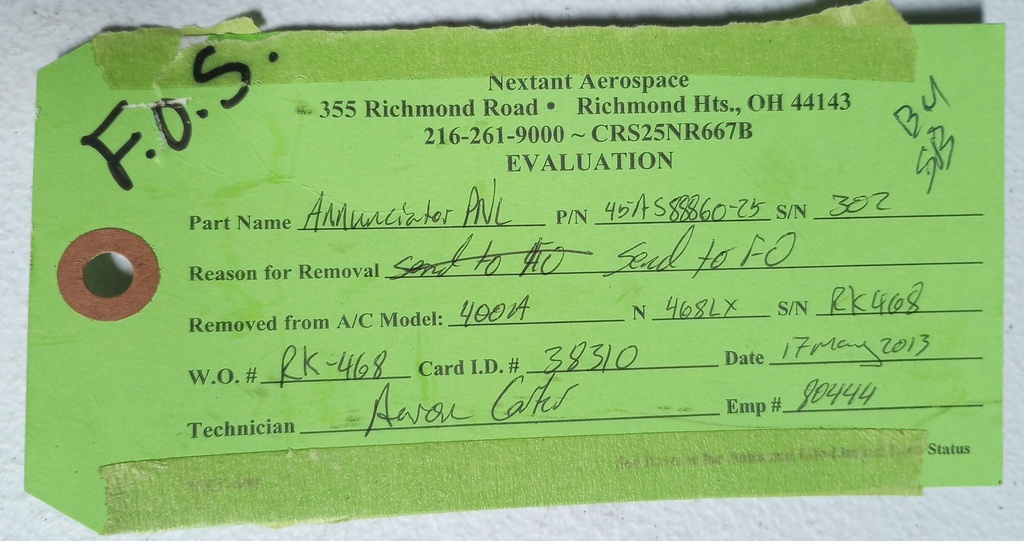 F.O.S.
Nextant Aerospace
355 Richmond Road • Richmond Hts., OH 44143
216-261-9000 ~ CRS25NR667B
EVALUATION
BU
SB
Part Name Annunciator PNL P/N 45AS88860-25 S/N 302
Reason for Removal send to FO Send to FO
Removed from A/C Model: 400A N 468LX S/N RK468
W.O. # RK-468 Card I.D. # 38310 Date 17 May 2013
Technician Aaron Carter Emp # 80444
Status